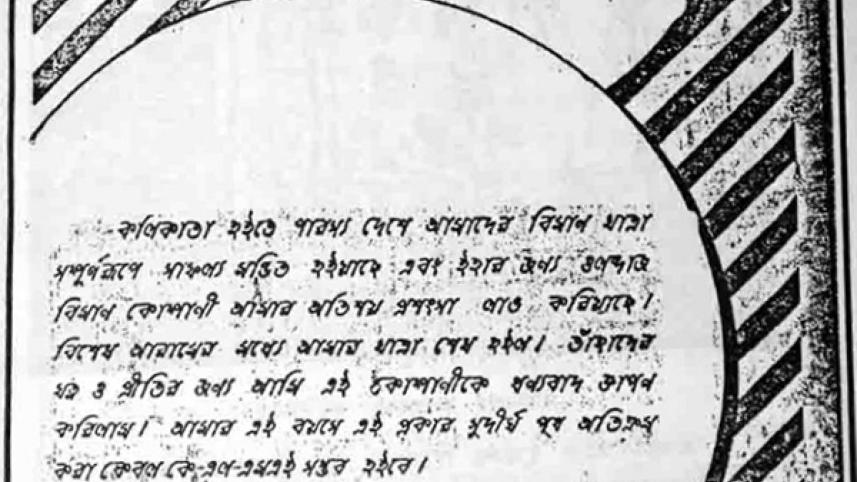 কলিকাতা হইতে পারস্য দেশে আমাদের বিমান যাত্রা
সম্পূর্ণরূপে সাফল্য মন্ডিত হইয়াছে এবং ইহার জন্য ওলন্দাজ
বিমান কোম্পানী আমার অতিশয় প্রশংসা লাভ করিয়াছে।
বিশেষ আরামের মধ্যে আমার যাত্রা শেষ হইল। তাঁহাদের
যত্ন ও প্রীতির জন্য আমি এই কোম্পানীকে ধন্যবাদ জ্ঞাপন
করিলাম। আমার এই বয়সে এই প্রকার সুদীর্ঘ পথ অতিক্রম
করা কেবল কে-এল-এমএই সম্ভব হইবে।